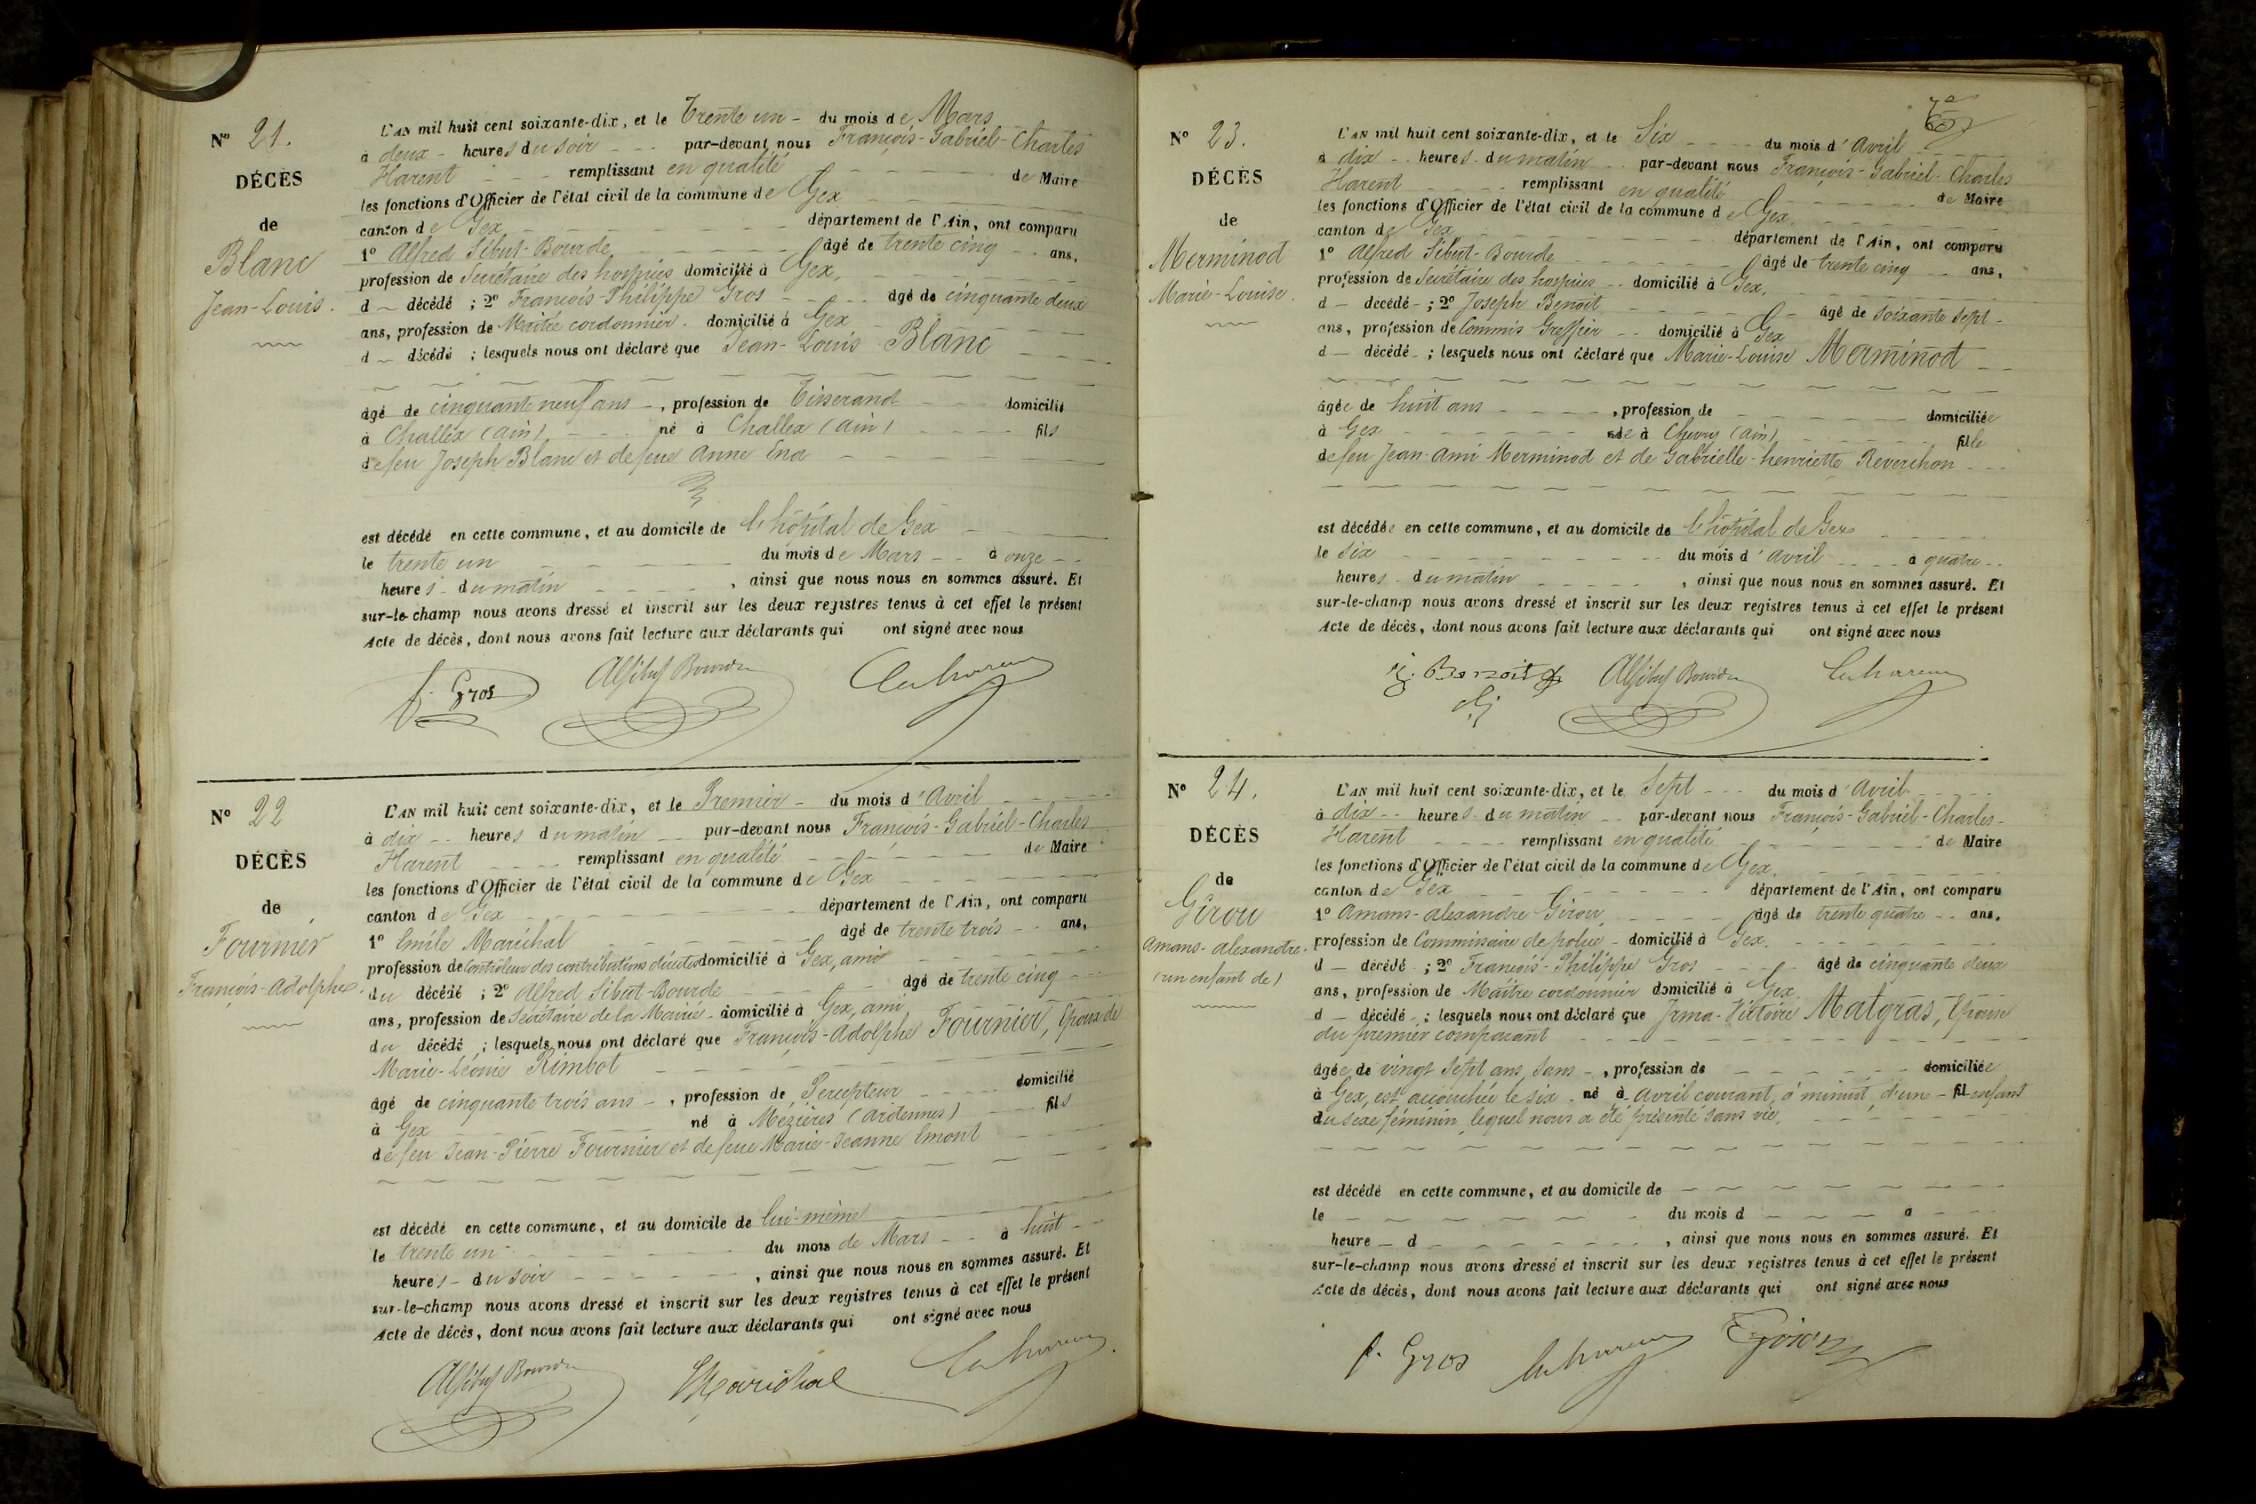 N° 21.
DÉCÈS
de
Blanc
Jean-Louis.
L'AN mil huit cent soixante-dix, et le Trente un - du mois de Mars
à deux - heures du soir - - - par-devant nous François-Gabriel-Charles
Harent - - - remplissant en qualité - - - de Maire
les fonctions d'Officier de l'état civil de la commune de Gex
canton de Gex - - - département de l'Ain, ont comparu
1° Alfred Sibut-Bourde - - - âgé de trente cinq - - ans,
profession de Secrétaire des hospices domicilié à Gex,
d - décédé ; 2° François-Philippe Gros - - - âgé de cinquante deux
ans, profession de Maître cordonnier. domicilié à Gex
d - décédé ; lesquels nous ont déclaré que Jean-Louis Blanc
âgé de cinquante neuf ans -, profession de Tisserand - - domicilié
à Challex (ain) - - - né à Challex (ain) - - - fils
de feu Joseph Blanc et de feue Anne Ena
est décédé en cette commune, et au domicile de l'hôpital de Gex
le trente un - - - du mois de Mars - - à onze - -
heures - du matin - - - , ainsi que nous nous en sommes assuré. Et
sur-le-champ nous avons dressé et inscrit sur les deux registres tenus à cet effet le présent
Acte de décès, dont nous avons fait lecture aux déclarants qui ont signé avec nous
f. Gros Alf Sibut Bourde
N° 22
DÉCÈS
de
Fournier
François-Adolphe.
L'AN mil huit cent soixante-dix, et le Premier - du mois d'Avril
à dix - - heures du matin - - par-devant nous François-Gabriel-Charles
Harent - - - remplissant en qualité - - - de Maire
les fonctions d'Officier de l'état civil de la commune de Gex
canton de Gex - - - département de l'Ain, ont comparu
1° Emile Maréchal - - - âgé de trente trois - - ans,
profession de Contrôleur des contributions directes domicilié à Gex, ami
du décédé ; 2° Alfred Sibut-Bourde - - - âgé de trente cinq
ans, profession de Secrétaire de la Mairie - domicilié à Gex, ami,
du décédé ; lesquels nous ont déclaré que François-Adolphe Fournier, Epoux de
Marie-Léonie Rimbot
âgé de cinquante trois ans -, profession de Percepteur - - - domicilié
à Gex - - - né à Mezières (ardennes) - - - fils
de feu Jean-Pierre Fournier et de feue Marie-Jeanne Emont
est décédé en cette commune, et au domicile de lui-même
le trente un - - - du mois de Mars - - à huit - -
heures - du soir - - - , ainsi que nous nous en sommes assuré. Et
sur-le-champ nous avons dressé et inscrit sur les deux registres tenus à cet effet le présent
Acte de décès, dont nous avons fait lecture aux déclarants qui ont signé avec nous
Alf Sibut Bourde Maréchal
N° 23.
DÉCÈS
de
Merminod
Marie-Louise.
L'AN mil huit cent soixante-dix, et le Six - - - du mois d'Avril
à dix - - heures - du matin - - par-devant nous François-Gabriel-Charles
Harent - - - remplissant en qualité - - - de Maire
les fonctions d'Officier de l'état civil de la commune de Gex
canton de Gex - - - département de l'Ain, ont comparu
1° Alfred Sibut-Bourde - - - âgé de trente cinq - - ans,
profession de Secrétaire des hospices - - domicilié à Gex,
d - décédé - ; 2° Joseph Benoit - - - âgé de soixante sept -
ans, profession de Commis Greffier - - domicilié à Gex
d - décédé - ; lesquels nous ont déclaré que Marie-Louise Merminod
âgée de huit ans - - - , profession de - - - domiciliée
à Gex - - - née à Chevry (ain) - - - fille
de feu Jean-ami Merminod et de Gabrielle-henriette Reverchon
est décédée en cette commune, et au domicile de l'hôpital de Gex
le six - - - du mois d'avril - - - à quatre - -
heures - du matin - - - , ainsi que nous nous en sommes assuré. Et
sur-le-champ nous avons dressé et inscrit sur les deux registres tenus à cet effet le présent
Acte de décès, dont nous avons fait lecture aux déclarants qui ont signé avec nous
j. Benoit Alf Sibut Bourde
N° 24.
DÉCÈS
de
Girou
Amans-alexandre.
(un enfant de)
L'AN mil huit cent soixante-dix, et le Sept - - - du mois d'Avril
à dix - - heures - du matin - - par-devant nous François-Gabriel-Charles-
Harent - - - remplissant en qualité - - - de Maire
les fonctions d'Officier de l'état civil de la commune de Gex,
canton de Gex - - - département de l'Ain, ont comparu
1° Amans-alexandre Girou - - - âgé de trente quatre - - ans,
profession de Commissaire de police - domicilié à Gex.
d - décédé - ; 2° François-Philippe Gros - - - âgé de cinquante deux
ans, profession de Maître cordonnier domicilié à Gex
d - décédé - ; lesquels nous ont déclaré que Irma-Victoire Malgras, Epouse
du premier comparant
âgée de vingt sept ans, sans -, profession de - - - domiciliée
à Gex, est accouchée le six - né à avril courant, à minuit, d'une - fil enfant
du sexe féminin, lequel nous a été présenté sans vie,
est décédé en cette commune, et au domicile de
le - - - du mois d - - - à
heure - d - - - , ainsi que nous nous en sommes assuré. Et
sur-le-champ nous avons dressé et inscrit sur les deux registres tenus à cet effet le présent
Acte de décès, dont nous avons fait lecture aux déclarants qui ont signé avec nous
f. Gros Girou